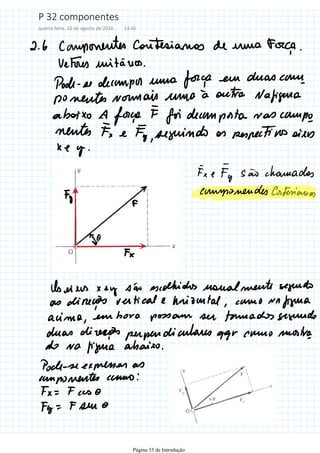 P 32 componentes
quarta-feira, 10 de agosto de 2016 14:45
2.6 Componentes Cartesianos de uma Força.
Vetores unitários.
Pode-se decompor uma força em duas com
ponentes normais uma à outra Na figura
abaixo A força F foi decomposta nas compo
nentes Fx e Fy, seguindo os respectivos eixos
x e y.
Fx e Fy são chamados
componendes Cartesianos
y
Fy
F
θ
O
Fx
x
Os eixos x e y são escolhidos usualmente segundo
as direções vertical e horizontal, como na figura
acima, embora possam ser tomados segundo
duas direções perpendiculares qqr como mostra
do na figura abaixo.
Pode-se expressar as
componentes como:
Fx = F cos θ
Fy = F sen θ
y
F
Fy
θ
Fx
O
x
Página 35 de Introdução